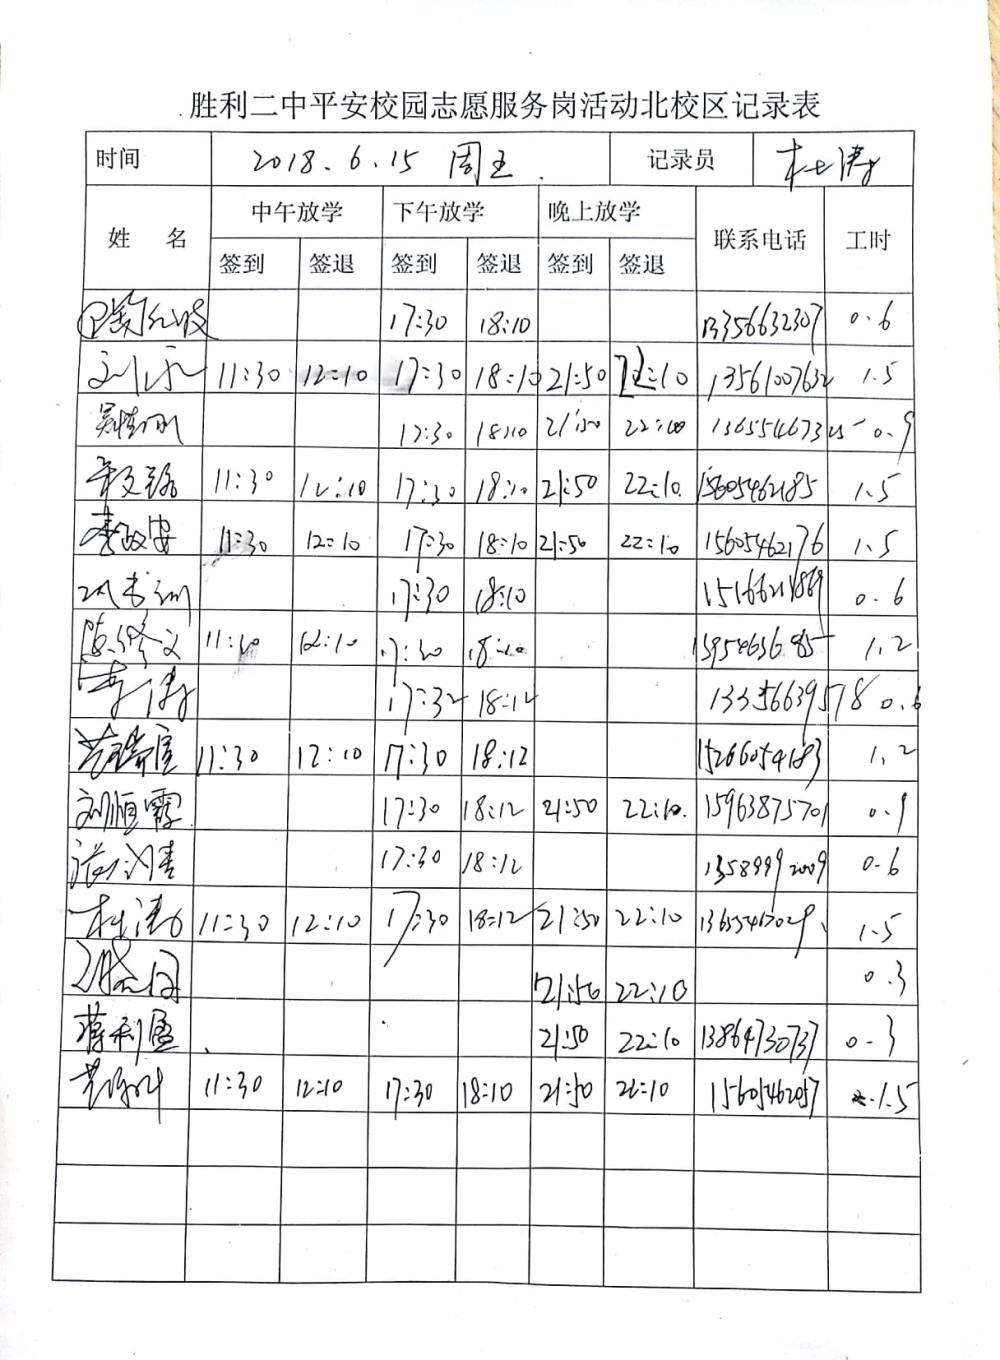 胜利二中平安校园志愿服务岗活动北校区记录表
时间 2018.6.15 周五. 记录员 杜涛
姓 名 中午放学 下午放学 晚上放学 联系电话 工时
签到 签退 签到 签退 签到 签退
17:30 18:10 13356632307 0.6
刘永 11:30 12:10 17:30 18:10 21:50 22:10 13561007632 1.5
17:30 18:10 21:50 22:10 13655467325 0.9
11:30 12:10 17:30 18:10 21:50 22:10. 15605462185 1.5
李政安 11:30 12:10 17:30 18:10 21:50 22:10 15605462176 1.5
17:30 18:10 0.6
陈修文 11:30 12:10 17:30 18:10 1.2
李涛 17:32 18:12 13356639578 0.6
11:30 12:10 17:30 18:12 15266054183 1.2
刘恒霞 17:30 18:12 21:50 22:10. 15963875701 0.9
17:30 18:12 13589992009 0.6
杜涛 11:30 12:10 17:30 18:12 21:50 22:10 13655467029 1.5
21:50 22:10 0.3
蒋利盈 21:50 22:10 13864730737 0.3
11:30 12:10 17:30 18:10 21:50 22:10 15605462057 1.5